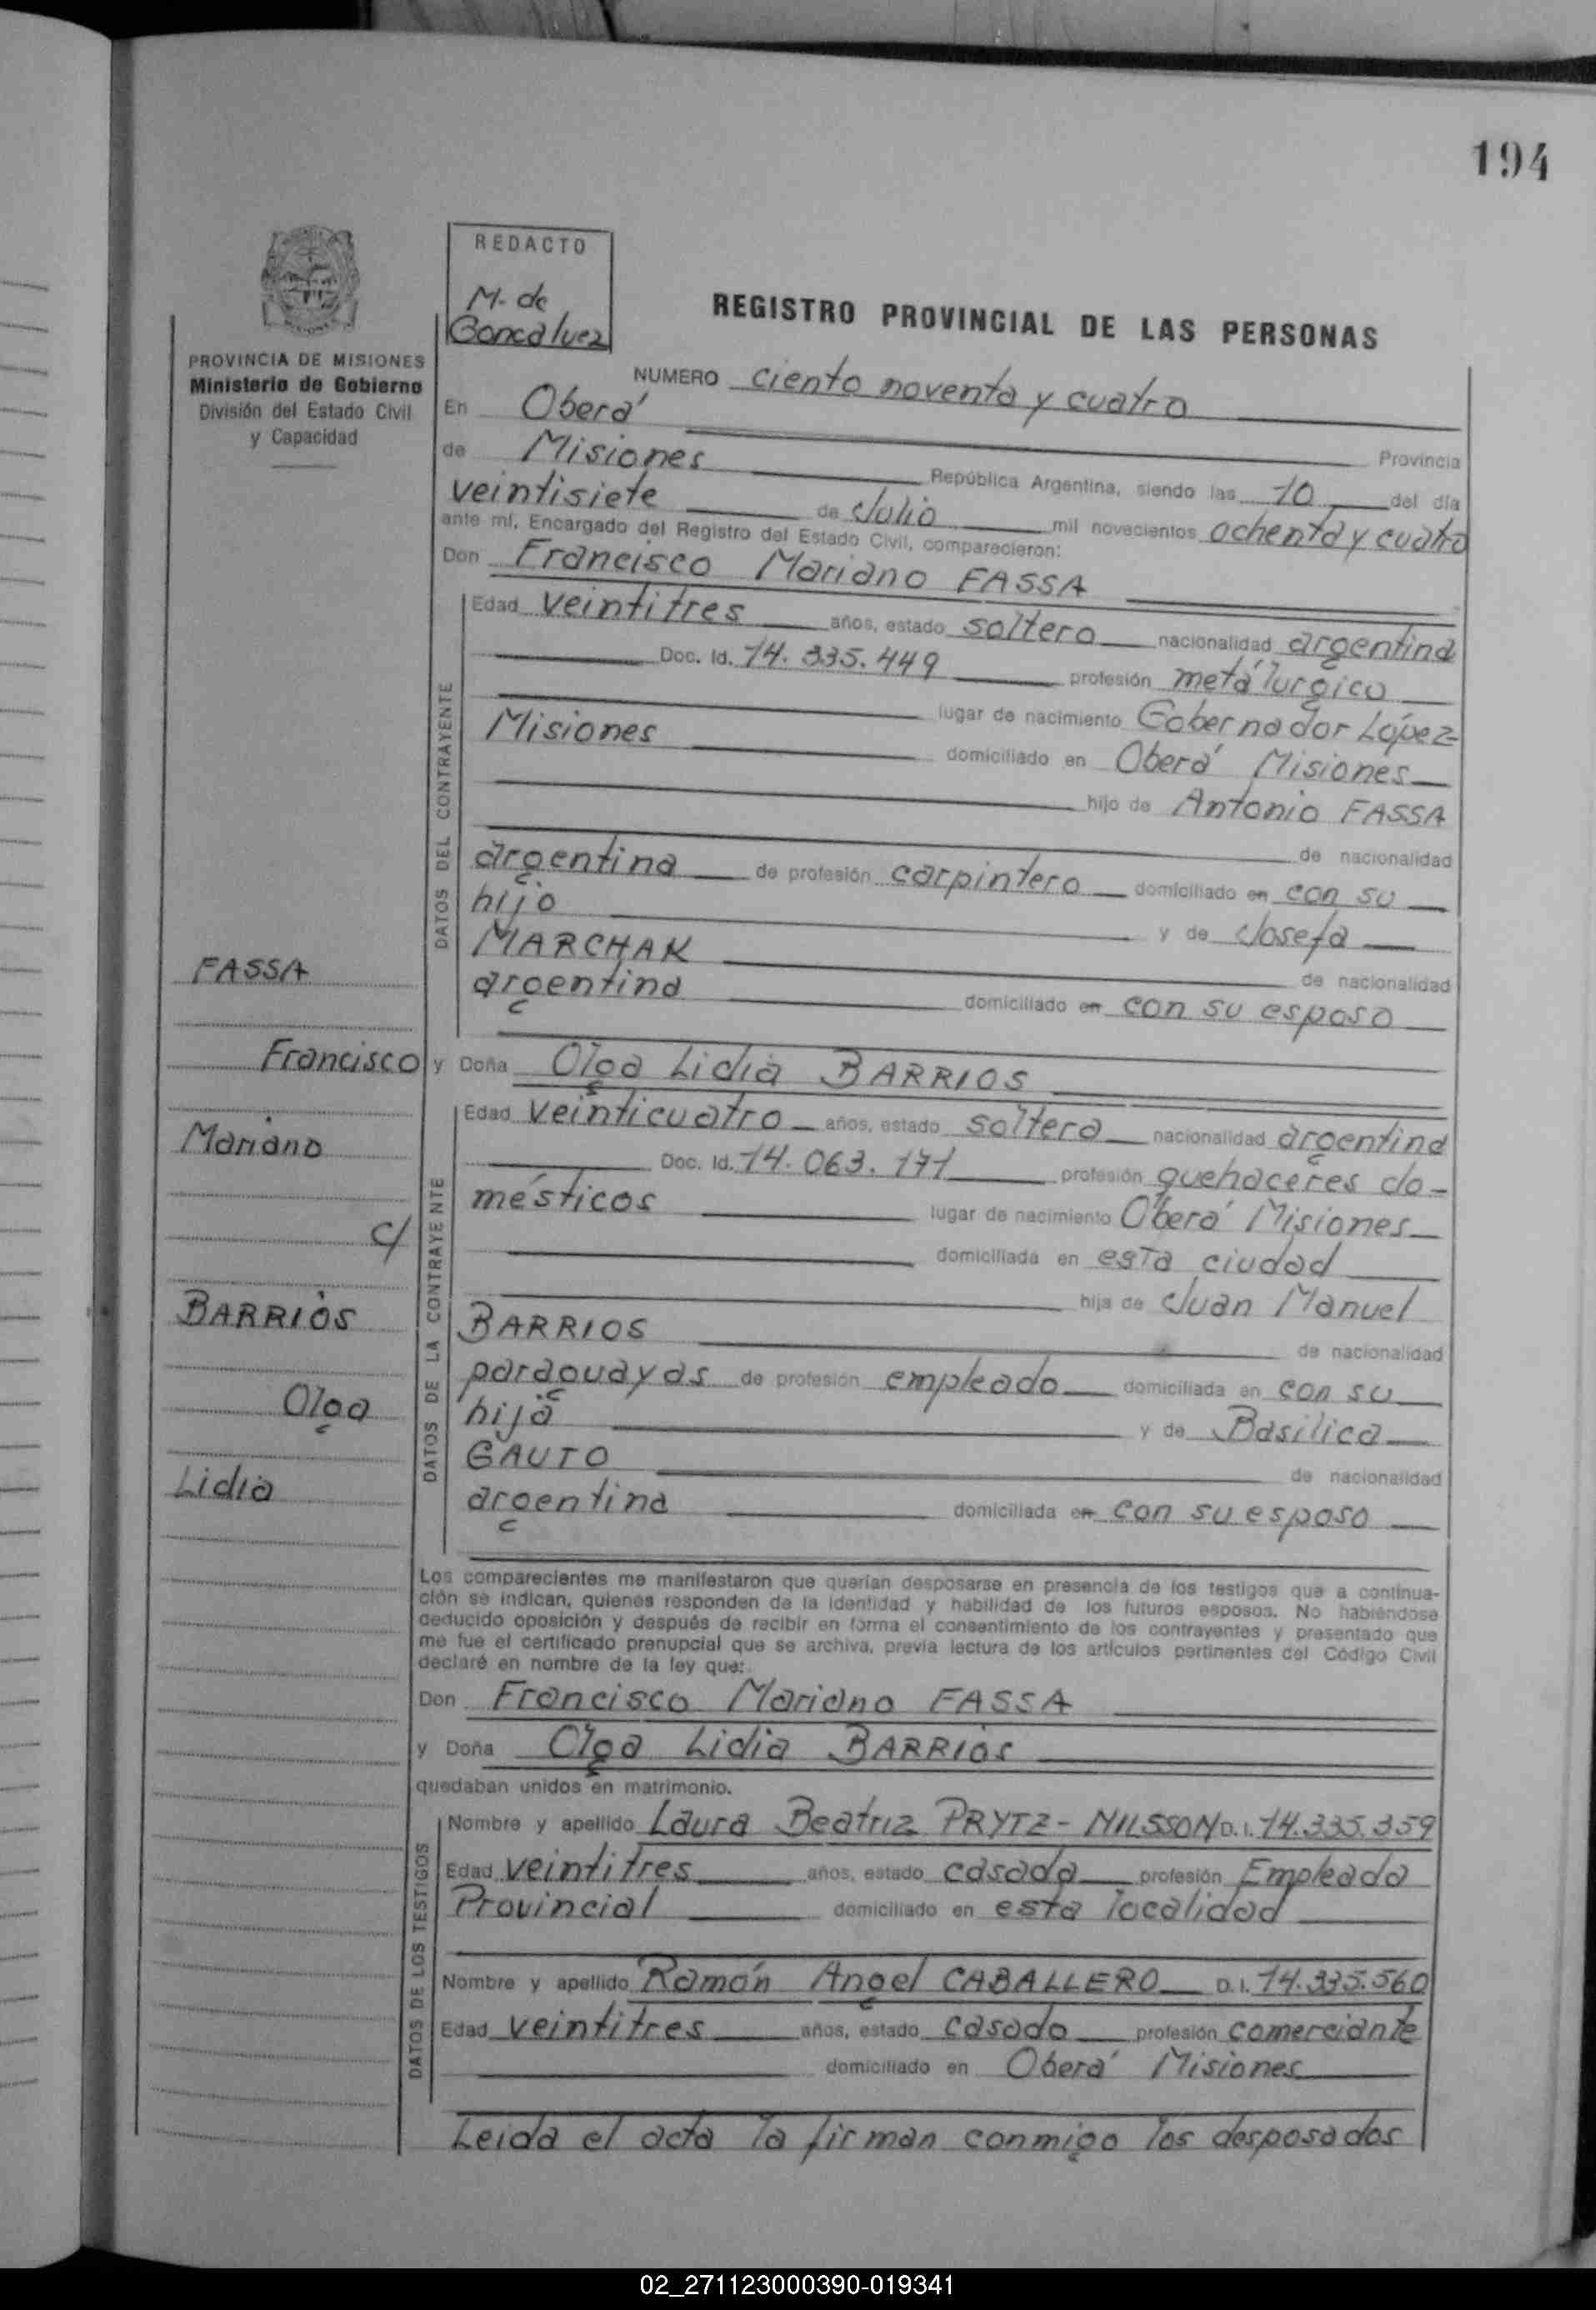 194
REDACTO
M. de
Goncalvez
REGISTRO PROVINCIAL DE LAS PERSONAS
PROVINCIA DE MISIONES
Ministerio de Gobierno
División del Estado Civil
y Capacidad
NUMERO ciento noventa y cuatro
En Oberá Provincia
de Misiones República Argentina, siendo las 10 del día
veintisiete de Julio mil novecientos ochenta y cuatro
ante mí, Encargado del Registro del Estado Civil, comparecieron:
Don Francisco Mariano FASSA
DATOS DEL CONTRAYENTE
Edad veintitres años, estado soltero nacionalidad argentina
Doc. Id. 14.335.449 profesión metálurgico
lugar de nacimiento Gobernador López-
Misiones domiciliado en Oberá Misiones
hijo de Antonio FASSA
de nacionalidad
argentina de profesión carpintero domiciliado en con su
hijo y de Josefa
MARCHAK de nacionalidad
argentina domiciliado en con su esposo
y Doña Olga Lidia BARRIOS
DATOS DE LA CONTRAYENTE
Edad veinticuatro años, estado soltera nacionalidad argentina
Doc. Id. 14.063.171 profesión quehaceres do-
mésticos lugar de nacimiento Oberá Misiones
domiciliada en esta ciudad
hija de Juan Manuel
BARRIOS de nacionalidad
paraguayas de profesión empleado domiciliada en con su
hija y de Basilica
GAUTO de nacionalidad
argentina domiciliada en con su esposo
FASSA
Francisco
Mariano
c/
BARRIOS
Olga
Lidia
Los comparecientes me manifestaron que querían desposarse en presencia de los testigos que a continua-
ción se indican, quienes responden de la identidad y habilidad de los futuros esposos. No habiéndose
deducido oposición y después de recibir en forma el consentimiento de los contrayentes y presentado que
me fue el certificado prenupcial que se archiva, previa lectura de los artículos pertinentes del Código Civil
declaré en nombre de la ley que:
Don Francisco Mariano FASSA
y Doña Olga Lidia BARRIOS
quedaban unidos en matrimonio.
DATOS DE LOS TESTIGOS
Nombre y apellido Laura Beatriz PRYTZ-NILSSON D.I. 14.335.359
Edad veintitres años, estado casada profesión Empleada
Provincial domiciliado en esta localidad
Nombre y apellido Ramón Angel CABALLERO D.I. 14.335.560
Edad veintitres años, estado casado profesión comerciante
domiciliado en Oberá Misiones
Leida el acta la firman conmigo los desposados
02_271123000390-019341